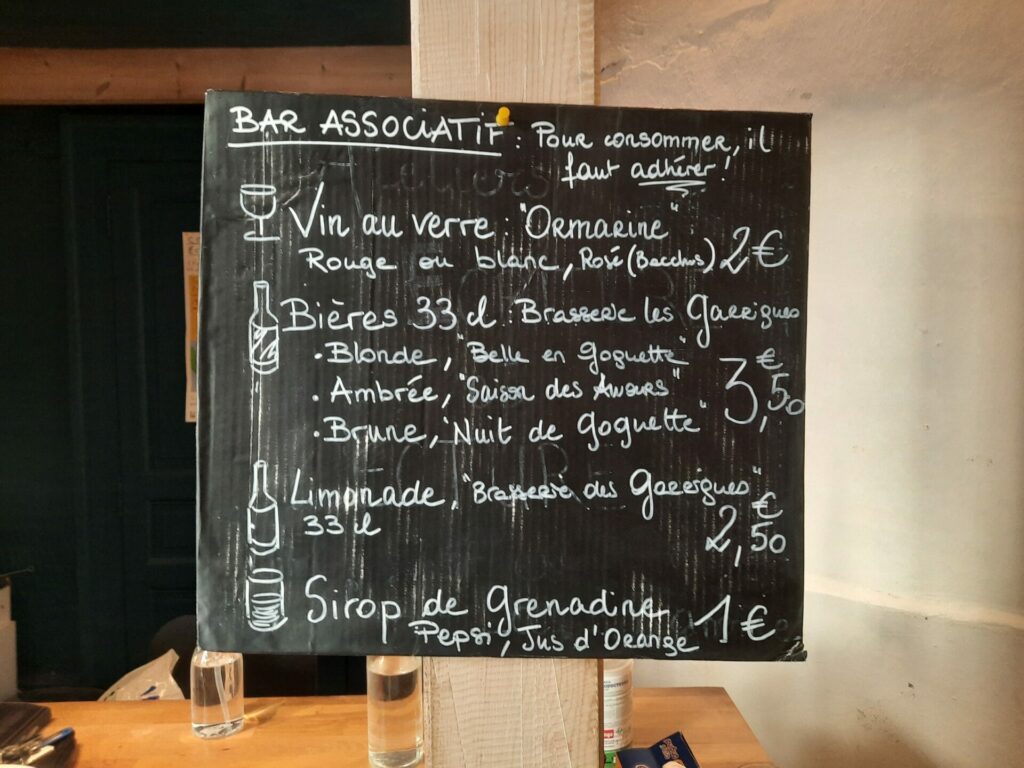 BAR ASSOCIATIF : Pour consommer, il
faut adhérer !
Vin au verre : "Ormarine"
Rouge ou blanc, Rosé (Bacchus) 2€
Bières 33 cl Brasserie les Garrigues
• Blonde, "Belle en Goguette"
• Ambrée, "Saison des Amours"
• Brune, "Nuit de Goguette"
3,50 €
Limonade, "Brasserie des Garrigues"
33 cl
2,50 €
Sirop de grenadine
Pepsi, Jus d'Orange 1€